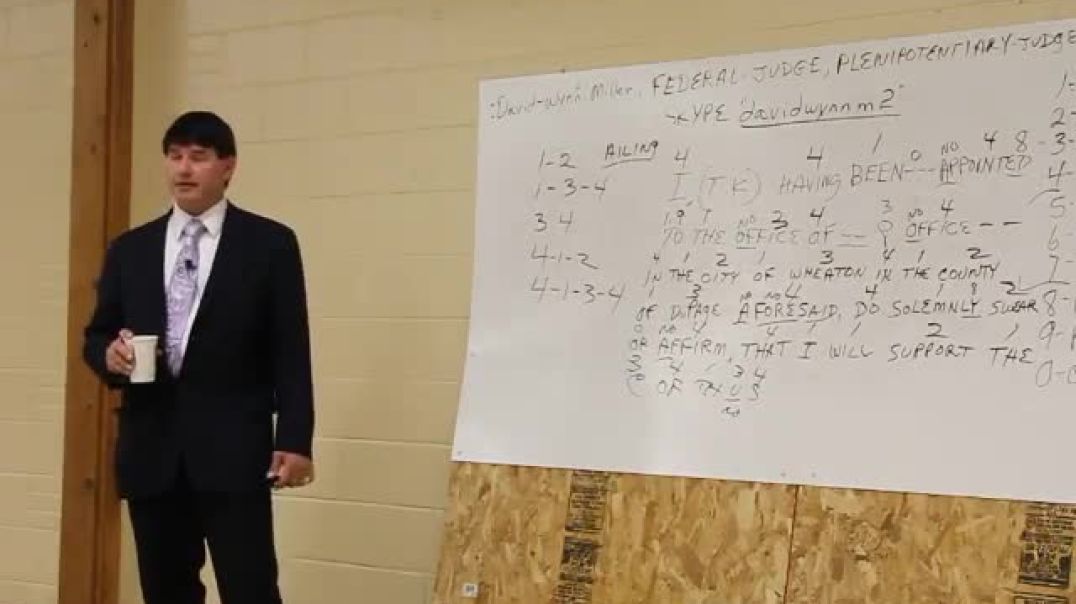 :David-wynn: Miller, FEDERAL-JUDGE, PLENIPOTENTIARY-JUDGE
SKYPE "davidwynnm2"
1-2 AILING 4 4 1 0 NO 4 8 -3-
1-3-4 I, (T K) HAVING BEEN --- APPOINTED 4-
3 4 1,9 1 NO 3 4 3 NO 4 5-
TO THE OFFICE OF -- OFFICE -- 6-
4-1-2 4 1 2 1 3 4 1 2
IN THE CITY OF WHEATON IN THE COUNTY 7-
4-1-3-4 1 3 4 4 1 8 2
OF DuPAGE AFORESAID, DO SOLEMNLY SWEAR 8-
0 NO 4 4 1 1 2 1 9-
OR AFFIRM, THAT I WILL SUPPORT THE
3 4 3 4 0-
C OF U S